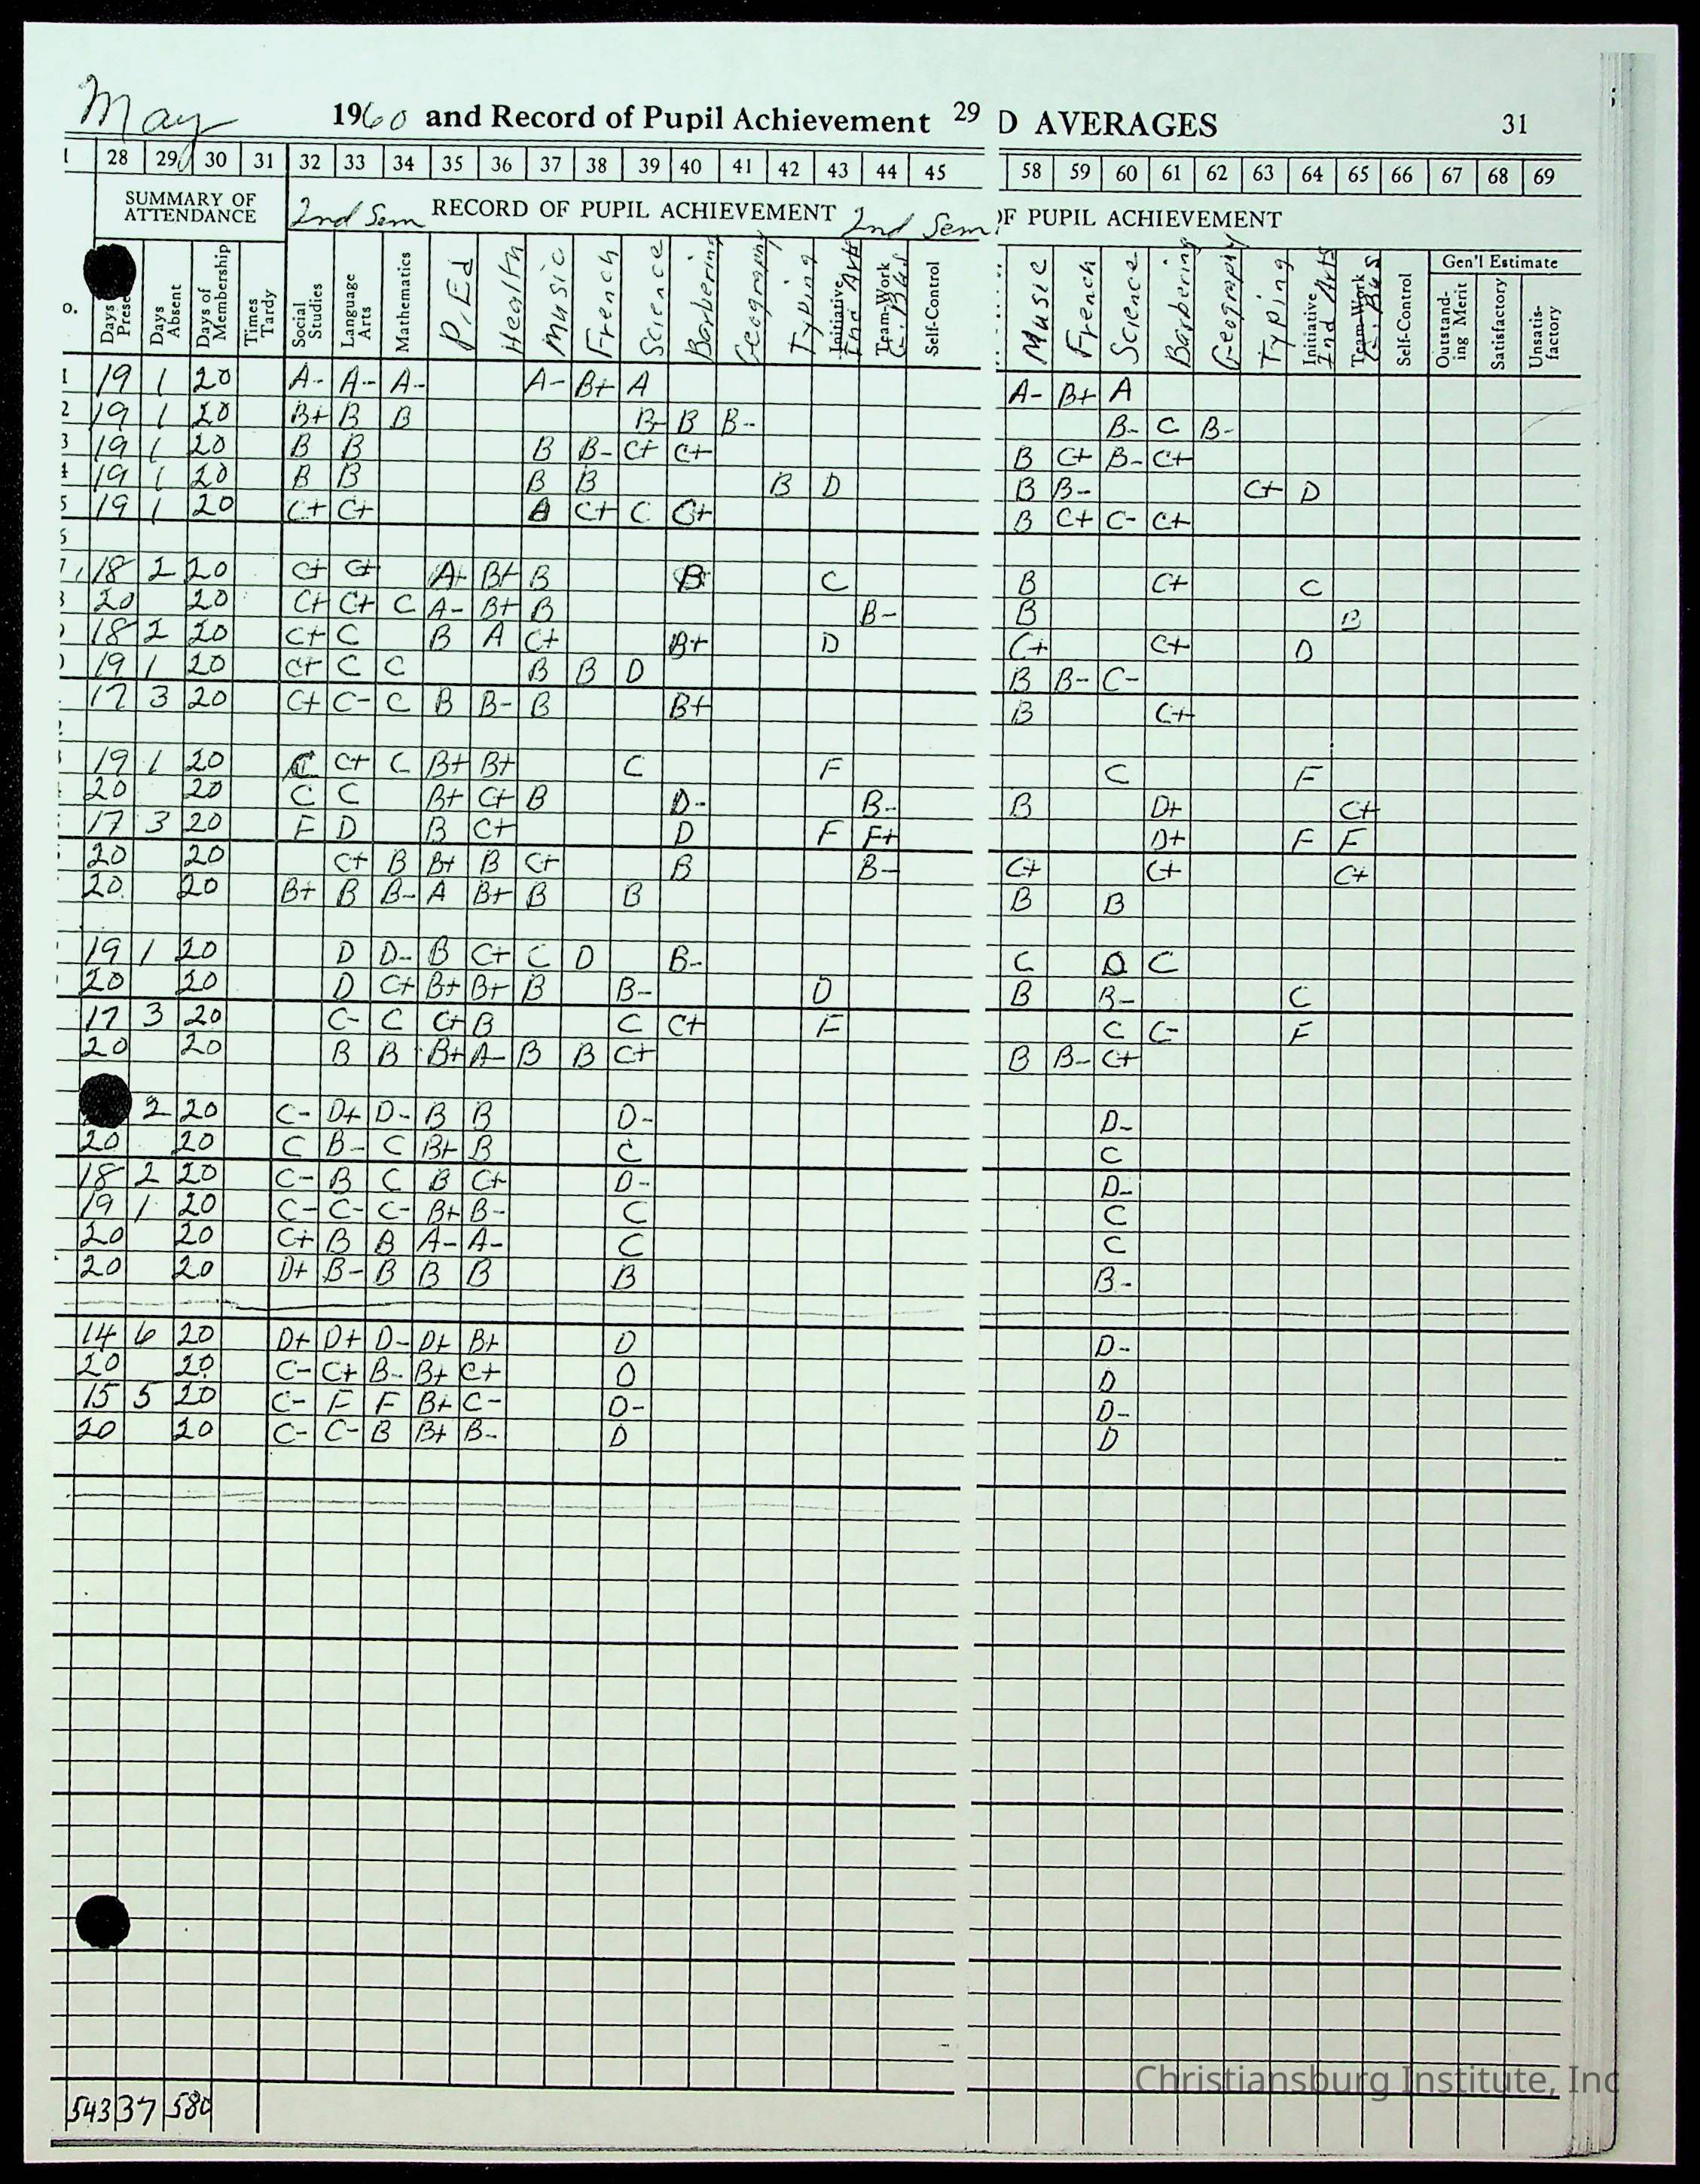 May 1960 and Record of Pupil Achievement 29 D AVERAGES 31
28 29 30 31 32 33 34 35 36 37 38 39 40 41 42 43 44 45 58 59 60 61 62 63 64 65 66 67 68 69
SUMMARY OF ATTENDANCE 2nd Sem RECORD OF PUPIL ACHIEVEMENT 2nd Sem. OF PUPIL ACHIEVEMENT
Gen'l Estimate
o. Days Prese Days Absent Days of Membership Times Tardy Social Studies Language Arts Mathematics P. Ed Health Music French Science Barbering Geography Typing Initiative Ind Arts Team-Work G. Bus Self-Control Music French Science Barbering Geography Typing Initiative Ind Arts Team-Work G. Bus Self-Control Outstand-ing Merit Satisfactory Unsatis-factory
1 19 1 20 A- A- A- A- B+ A A- B+ A
2 19 1 20 B+ B B B- B B- B- C B-
3 19 1 20 B B B B- C+ C+ B C+ B- C+
4 19 1 20 B B B B B D B B- C+ D
5 19 1 20 C+ C+ C+ C C+ B C+ C- C+
18 2 20 C+ C+ A+ B+ B B C B C+ C
20 20 C+ C+ C A- B+ B B- B B
18 2 20 C+ C B A C+ B+ D C+ C+ D
19 1 20 C+ C C B B D B B- C-
17 3 20 C+ C- C B B- B B+ B C+
19 1 20 C C+ C B+ B+ C F C F
20 20 C C B+ C+ B D- B- B D+ C+
17 3 20 F D B C+ D F F+ D+ F F
20 20 C+ B B+ B C+ B B- C+ C+ C+
20 20 B+ B B- A B+ B B B B
19 1 20 D D- B C+ C D B- C D C
20 20 D C+ B+ B+ B B- D B B- C
17 3 20 C- C C+ B C C+ F C C- F
20 20 B B B+ A- B B C+ B B- C+
2 20 C- D+ D- B B D- D-
20 20 C B- C B+ B C C
18 2 20 C- B C B C+ D- D-
19 1 20 C- C- C- B+ B- C C
20 20 C+ B B A- A- C C
20 20 D+ B- B B B B B-
14 6 20 D+ D+ D- D+ B+ D D-
20 20 C- C+ B- B+ C+ D D
15 5 20 C- F F B+ C- D- D-
20 20 C- C- B B+ B- D D
Christiansburg Institute, Inc
543 37 580